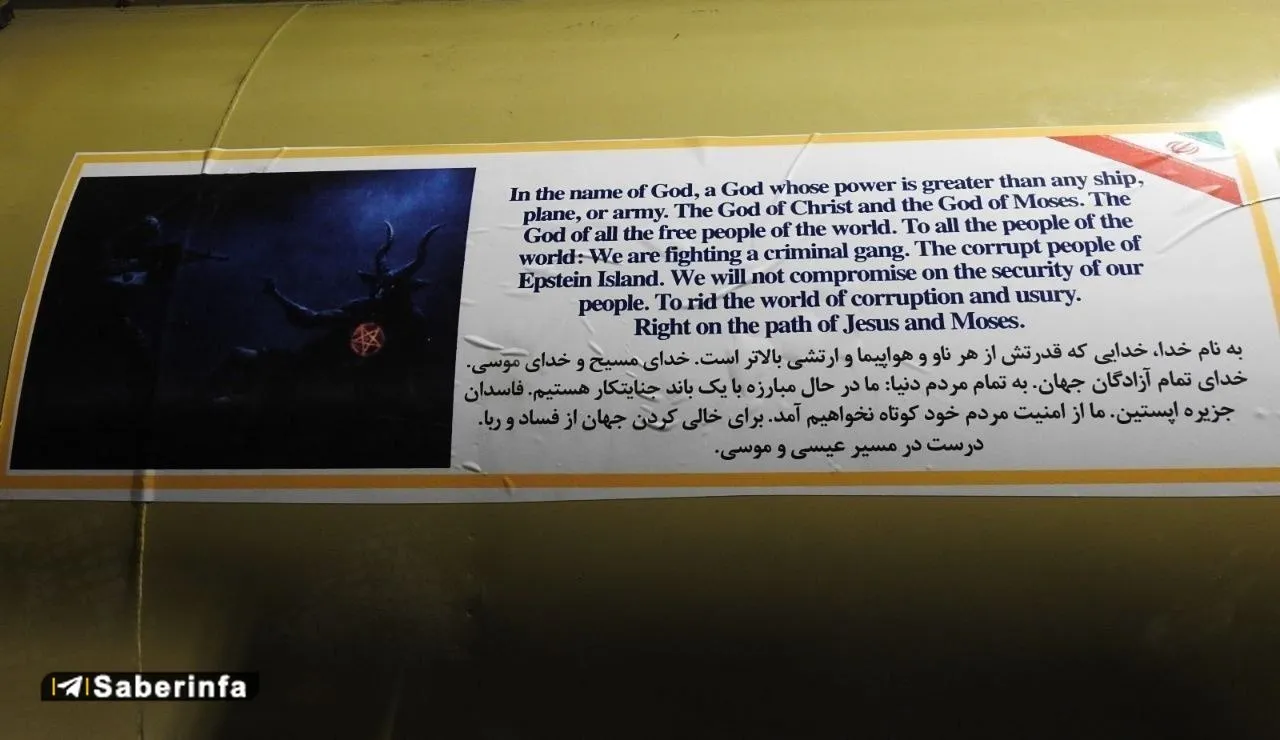 In the name of God, a God whose power is greater than any ship,
plane, or army. The God of Christ and the God of Moses. The
God of all the free people of the world. To all the people of the
world: We are fighting a criminal gang. The corrupt people of
Epstein Island. We will not compromise on the security of our
people. To rid the world of corruption and usury.
Right on the path of Jesus and Moses.
به نام خدا، خدایی که قدرتش از هر ناو و هواپیما و ارتشی بالاتر است. خدای مسیح و خدای موسی.
خدای تمام آزادگان جهان. به تمام مردم دنیا: ما در حال مبارزه با یک باند جنایتکار هستیم. فاسدان
جزیره اپستین. ما از امنیت مردم خود کوتاه نخواهیم آمد. برای خالی کردن جهان از فساد و ربا.
درست در مسیر عیسی و موسی.
Saberinfa